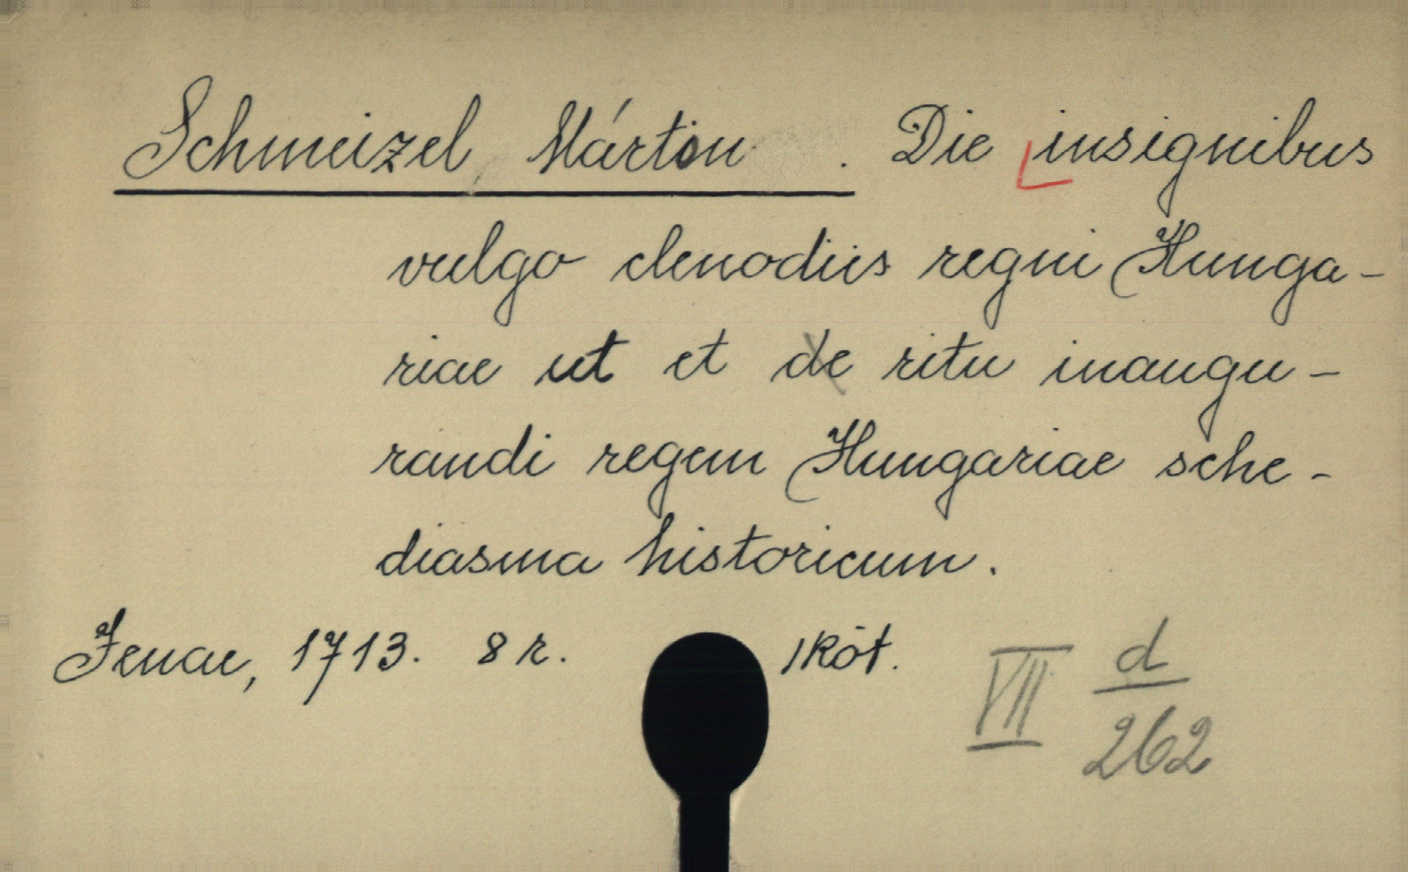 Schmeizel Márton. Die insignibus
vulgo clenodiis regni Hunga-
riae ut et de ritu inaugu-
randi regem Hungariae sche-
diasma historicum.
Jenae, 1713. 8 r. 1 köt.
VII d/262